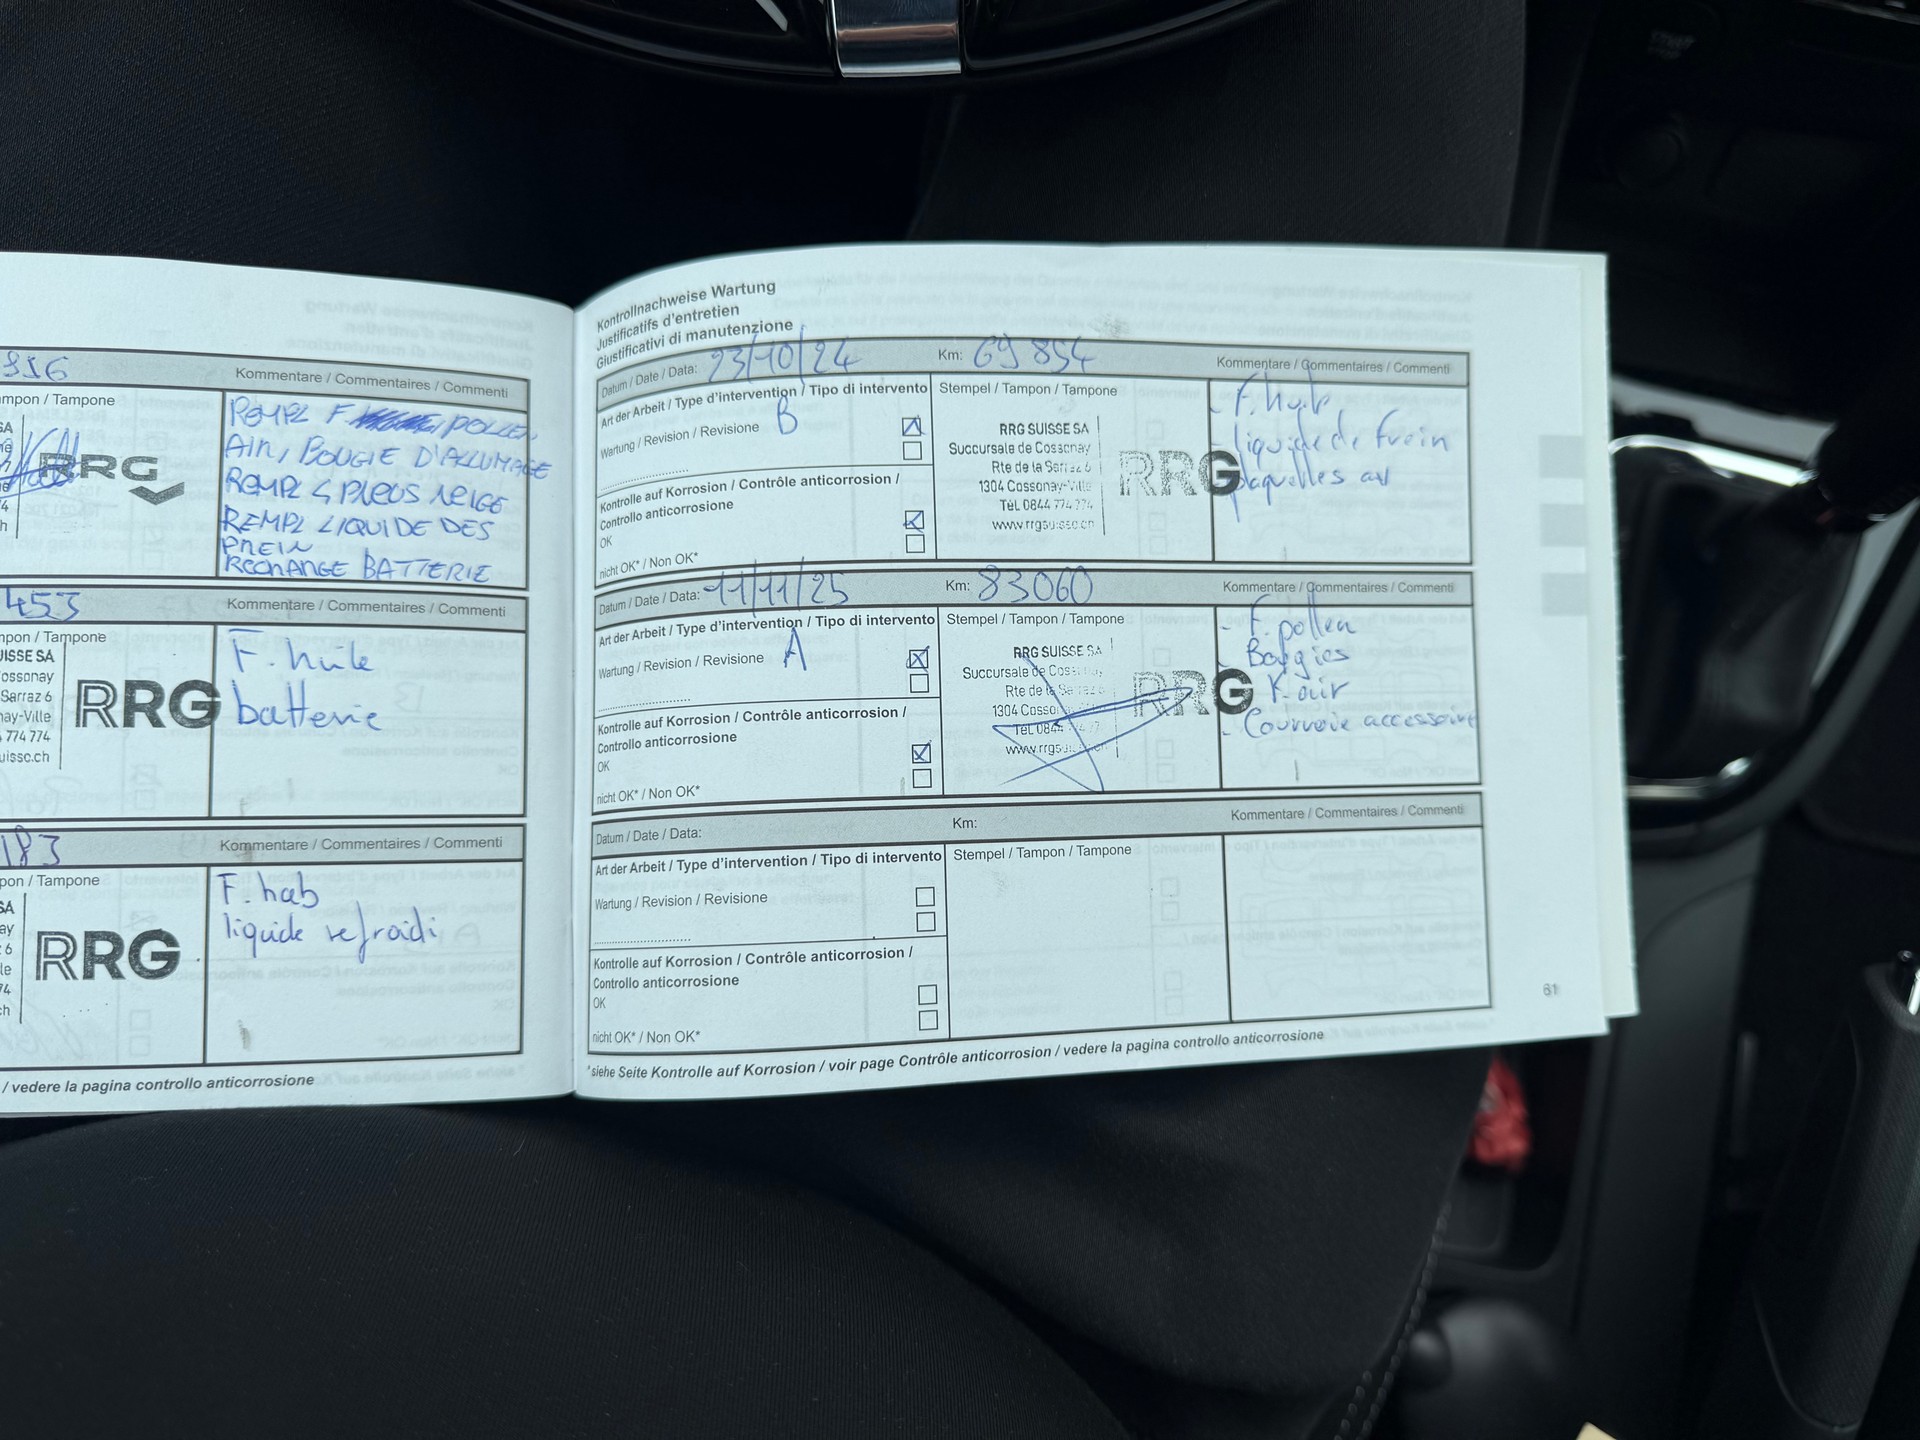 Kommentare / Commentaires / Commenti
mpon / Tampone
SA
RRG
REMPL F. POLLEN,
AIR, BOUGIE D'ALLUMAGE
REMPL 4 PNEUS NEIGE
REMPL LIQUIDE DES
FREIN
RECHANGE BATTERIE
453
Kommentare / Commentaires / Commenti
npon / Tampone
UISSE SA
ossonay
Sarraz 6
nay-Ville
774 774
uisse.ch
RRG
F. huile
batterie
183
Kommentare / Commentaires / Commenti
pon / Tampone
SA
ay
6
le
74
ch
RRG
F. hab
liquide refroidi
/ vedere la pagina controllo anticorrosione
Kontrollnachweise Wartung
Justificatifs d'entretien
Giustificativi di manutenzione
Datum / Date / Data: 23/10/24
Km: 69 854
Kommentare / Commentaires / Commenti
Art der Arbeit / Type d'intervention / Tipo di intervento
Wartung / Revision / Revisione B
Kontrolle auf Korrosion / Contrôle anticorrosion /
Controllo anticorrosione
OK
nicht OK* / Non OK*
Stempel / Tampon / Tampone
RRG SUISSE SA
Succursale de Cossonay
Rte de la Sarraz 6
1304 Cossonay-Ville
Tél. 0844 774 774
www.rrgsuisse.ch
RRG
- F. hab
- liquide de frein
- plaquettes av
Datum / Date / Data: 11/11/25
Km: 83060
Kommentare / Commentaires / Commenti
Art der Arbeit / Type d'intervention / Tipo di intervento
Wartung / Revision / Revisione A
Kontrolle auf Korrosion / Contrôle anticorrosion /
Controllo anticorrosione
OK
nicht OK* / Non OK*
Stempel / Tampon / Tampone
RRG SUISSE SA
Succursale de Cossonay
Rte de la Sarraz
1304 Cosso
Tél. 0844
www.rrgsuisse.ch
RRG
- F. pollen
- Bougies
- F. air
- Courroie accessoire
Datum / Date / Data:
Km:
Kommentare / Commentaires / Commenti
Art der Arbeit / Type d'intervention / Tipo di intervento
Wartung / Revision / Revisione
Kontrolle auf Korrosion / Contrôle anticorrosion /
Controllo anticorrosione
OK
nicht OK* / Non OK*
Stempel / Tampon / Tampone
*siehe Seite Kontrolle auf Korrosion / voir page Contrôle anticorrosion / vedere la pagina controllo anticorrosione
61